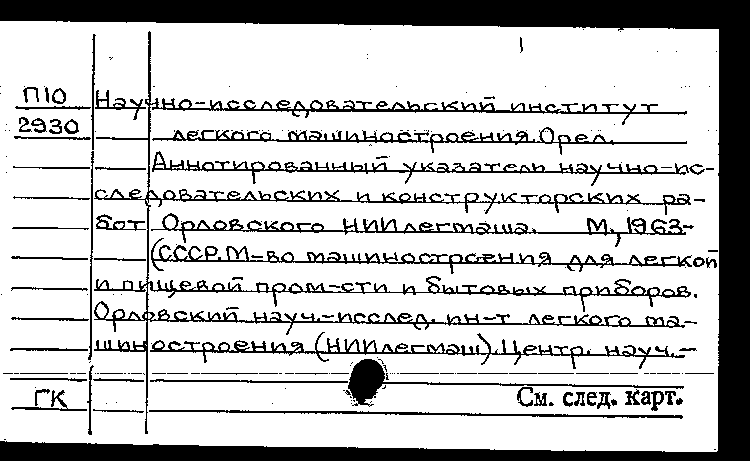 П10 Научно-исследовательский институт
2930 легкого машиностроения. Орел.
Аннотированный указатель научно-ис-
следовательских и конструкторских ра-
бот Орловского НИИлегмаша. М., 1963-
(СССР. М-во машиностроения для легкой
и пищевой пром-сти и бытовых приборов.
Орловский науч.-исслед. ин-т легкого ма-
шиностроения (НИИлегмаш). Центр. науч.-
ГК См. след. карт.